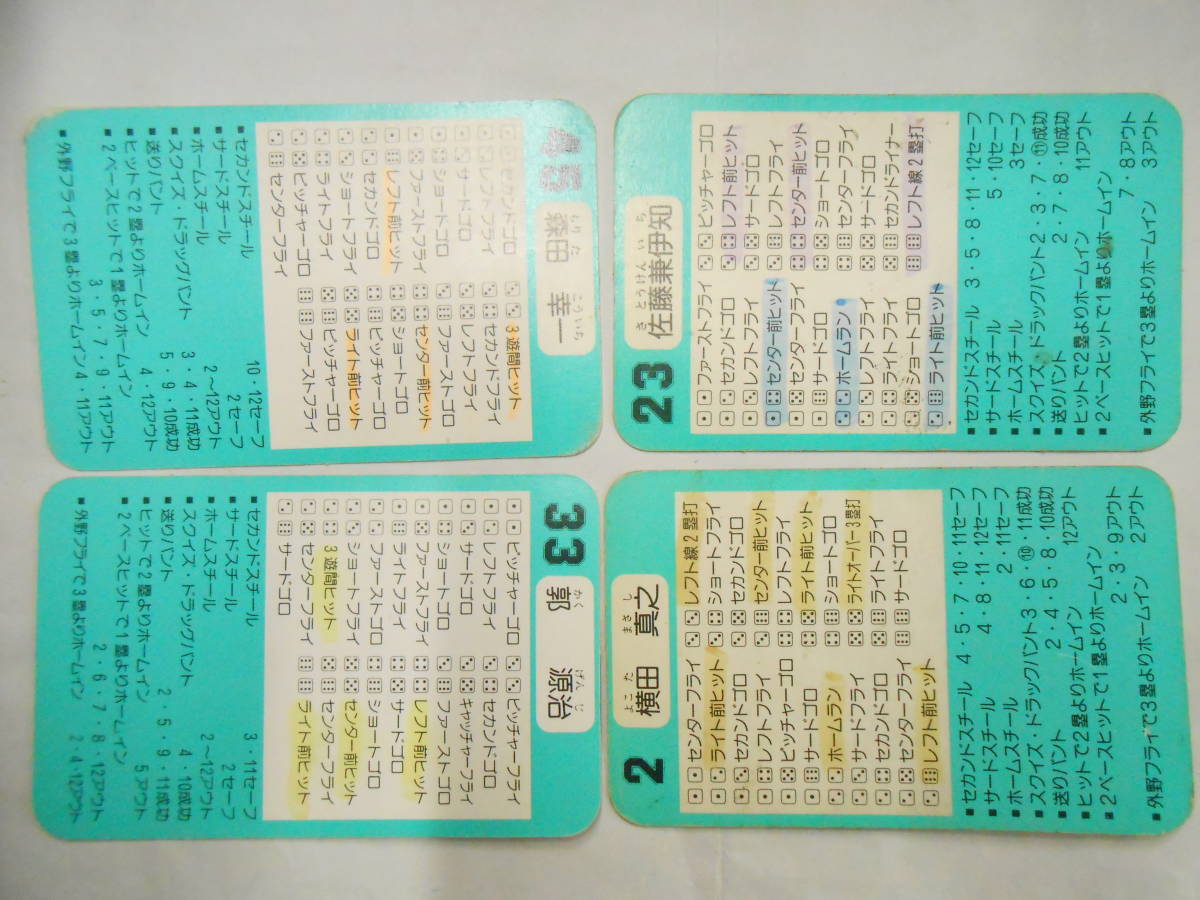 森田 幸一
もりた こういち
セカンドゴロ 3遊間ヒット
レフトフライ セカンドフライ
サードゴロ レフトフライ
ショートゴロ ファーストゴロ
ファーストフライ センター前ヒット
レフト前ヒット ショートゴロ
セカンドゴロ ピッチャーゴロ
ショートフライ ライト前ヒット
ライトフライ ピッチャーゴロ
ピッチャーゴロ ファーストフライ
センターフライ
■セカンドスチール 10・12セーフ
■サードスチール 2セーフ
■ホームスチール 2～12アウト
■スクイズ・ドラックバント 3・4・11成功
■送りバント 5・9・10成功
■ヒットで2塁よりホームイン 4・12アウト
■2ベースヒットで1塁よりホームイン 3・5・7・9・11アウト
■外野フライで3塁よりホームイン 4・11アウト
33 郭 源治
かく げんじ
ピッチャーゴロ ピッチャーフライ
レフトフライ セカンドゴロ
サードゴロ キャッチャーフライ
ファーストフライ ファーストゴロ
ライトフライ レフト前ヒット
ファーストゴロ サードゴロ
ショートフライ ショートゴロ
3遊間ヒット センター前ヒット
センターフライ センターフライ
サードゴロ ライト前ヒット
■セカンドスチール 3・11セーフ
■サードスチール 2セーフ
■ホームスチール 2～12アウト
■スクイズ・ドラックバント 4・10成功
■送りバント 2・5・9・11成功
■ヒットで2塁よりホームイン 5アウト
■2ベースヒットで1塁よりホームイン 2・6・7・8・12アウト
■外野フライで3塁よりホームイン 2・4・12アウト
23 佐藤兼伊知
さとうけんいち
ファーストフライ ピッチャーゴロ
セカンドゴロ レフト前ヒット
レフトフライ サードゴロ
センター前ヒット レフトフライ
センターフライ センター前ヒット
サードゴロ ショートゴロ
ホームラン センターフライ
レフトフライ サードゴロ
ライトフライ セカンドライナー
ショートゴロ レフト線2塁打
ライト前ヒット
■セカンドスチール 3・5・8・11・12セーフ
■サードスチール 5・10セーフ
■ホームスチール 3セーフ
■スクイズ・ドラックバント2・3・7・⑪成功
■送りバント 2・7・8・10成功
■ヒットで2塁よりホームイン 11アウト
■2ベースヒットで1塁よりホームイン 7・8アウト
■外野フライで3塁よりホームイン 3アウト
2 横田 真之
よこた まさし
センターフライ レフト線2塁打
ライト前ヒット ショートフライ
セカンドゴロ セカンドゴロ
レフトフライ センター前ヒット
ピッチャーゴロ レフトフライ
サードゴロ ライト前ヒット
ホームラン ショートゴロ
サードフライ ライトオーバー3塁打
セカンドゴロ ライトフライ
センターフライ サードゴロ
レフト前ヒット
■セカンドスチール 4・5・7・10・11セーフ
■サードスチール 4・8・11・12セーフ
■ホームスチール 2・11セーフ
■スクイズ・ドラックバント3・6・⑩・11成功
■送りバント 2・4・5・8・10成功
■ヒットで2塁よりホームイン 12アウト
■2ベースヒットで1塁よりホームイン 2・3・9アウト
■外野フライで3塁よりホームイン 2アウト